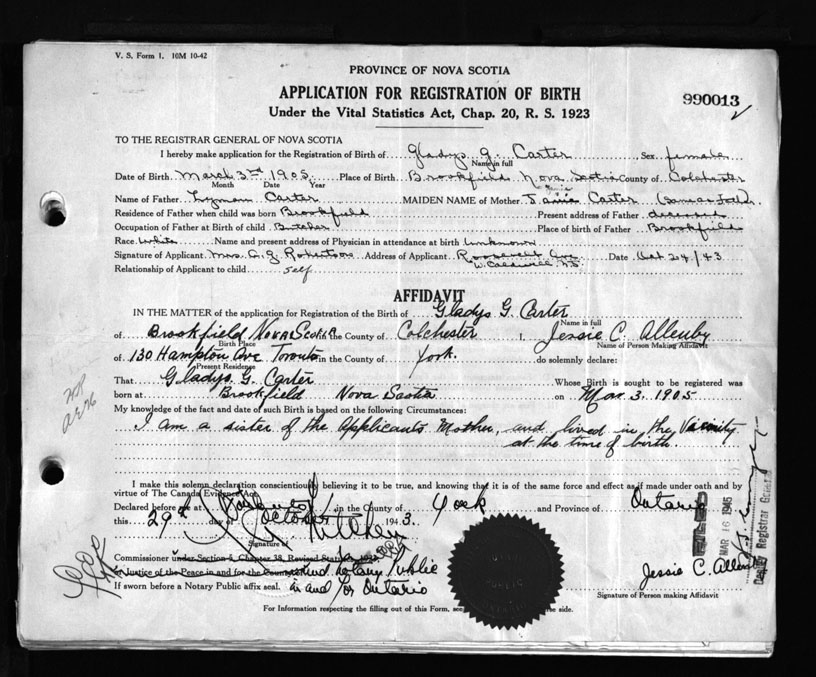 V. S. Form 1. 10M 10-42
PROVINCE OF NOVA SCOTIA
APPLICATION FOR REGISTRATION OF BIRTH
990013
Under the Vital Statistics Act, Chap. 20, R. S. 1923
TO THE REGISTRAR GENERAL OF NOVA SCOTIA
I hereby make application for the Registration of Birth of Gladys G. Carter Sex female
Name in full
Date of Birth March 3rd 1905 Place of Birth Brookfield Nova Scotia County of Colchester
Month Date Year
Name of Father Lyman Carter MAIDEN NAME of Mother Carter
Residence of Father when child was born Brookfield Present address of Father deceased
Occupation of Father at Birth of child Butcher Place of birth of Father Brookfield
Race White Name and present address of Physician in attendance at birth unknown
Signature of Applicant Mrs. G. J. Robertson Address of Applicant Roosevelt Ave Date Oct 24/43
W. Caldwell, N.J.
Relationship of Applicant to child self
AFFIDAVIT
IN THE MATTER of the application for Registration of the Birth of Gladys G. Carter
Name in full
of Brookfield Nova Scotia in the County of Colchester I, Jessie C. Allenby
Birth Place Name of Person Making Affidavit
of 130 Hampton Ave Toronto in the County of York. do solemnly declare:
Present Residence
That Gladys G. Carter Whose Birth is sought to be registered was
born at Brookfield Nova Scotia on Mar. 3. 1905
My knowledge of the fact and date of such Birth is based on the following Circumstances:
I am a sister of the Applicants Mother, and lived in the Vicinity
at the time of birth.
I make this solemn declaration conscientiously believing it to be true, and knowing that it is of the same force and effect as if made under oath and by
virtue of The Canada Evidence Act.
Declared before me at Toronto in the County of York and Province of Ontario
this 29th day of October 1943.
Signature
Commissioner under Section 4, Chapter 38, Revised Statutes 1923
or Justice of the Peace in and for the County and Notary Public
If sworn before a Notary Public affix seal. in and for Ontario
Jessie C. Allenby
Signature of Person making Affidavit
For Information respecting the filling out of this Form, see the side.
FILED
MAR 16 1945
Deputy Registrar General